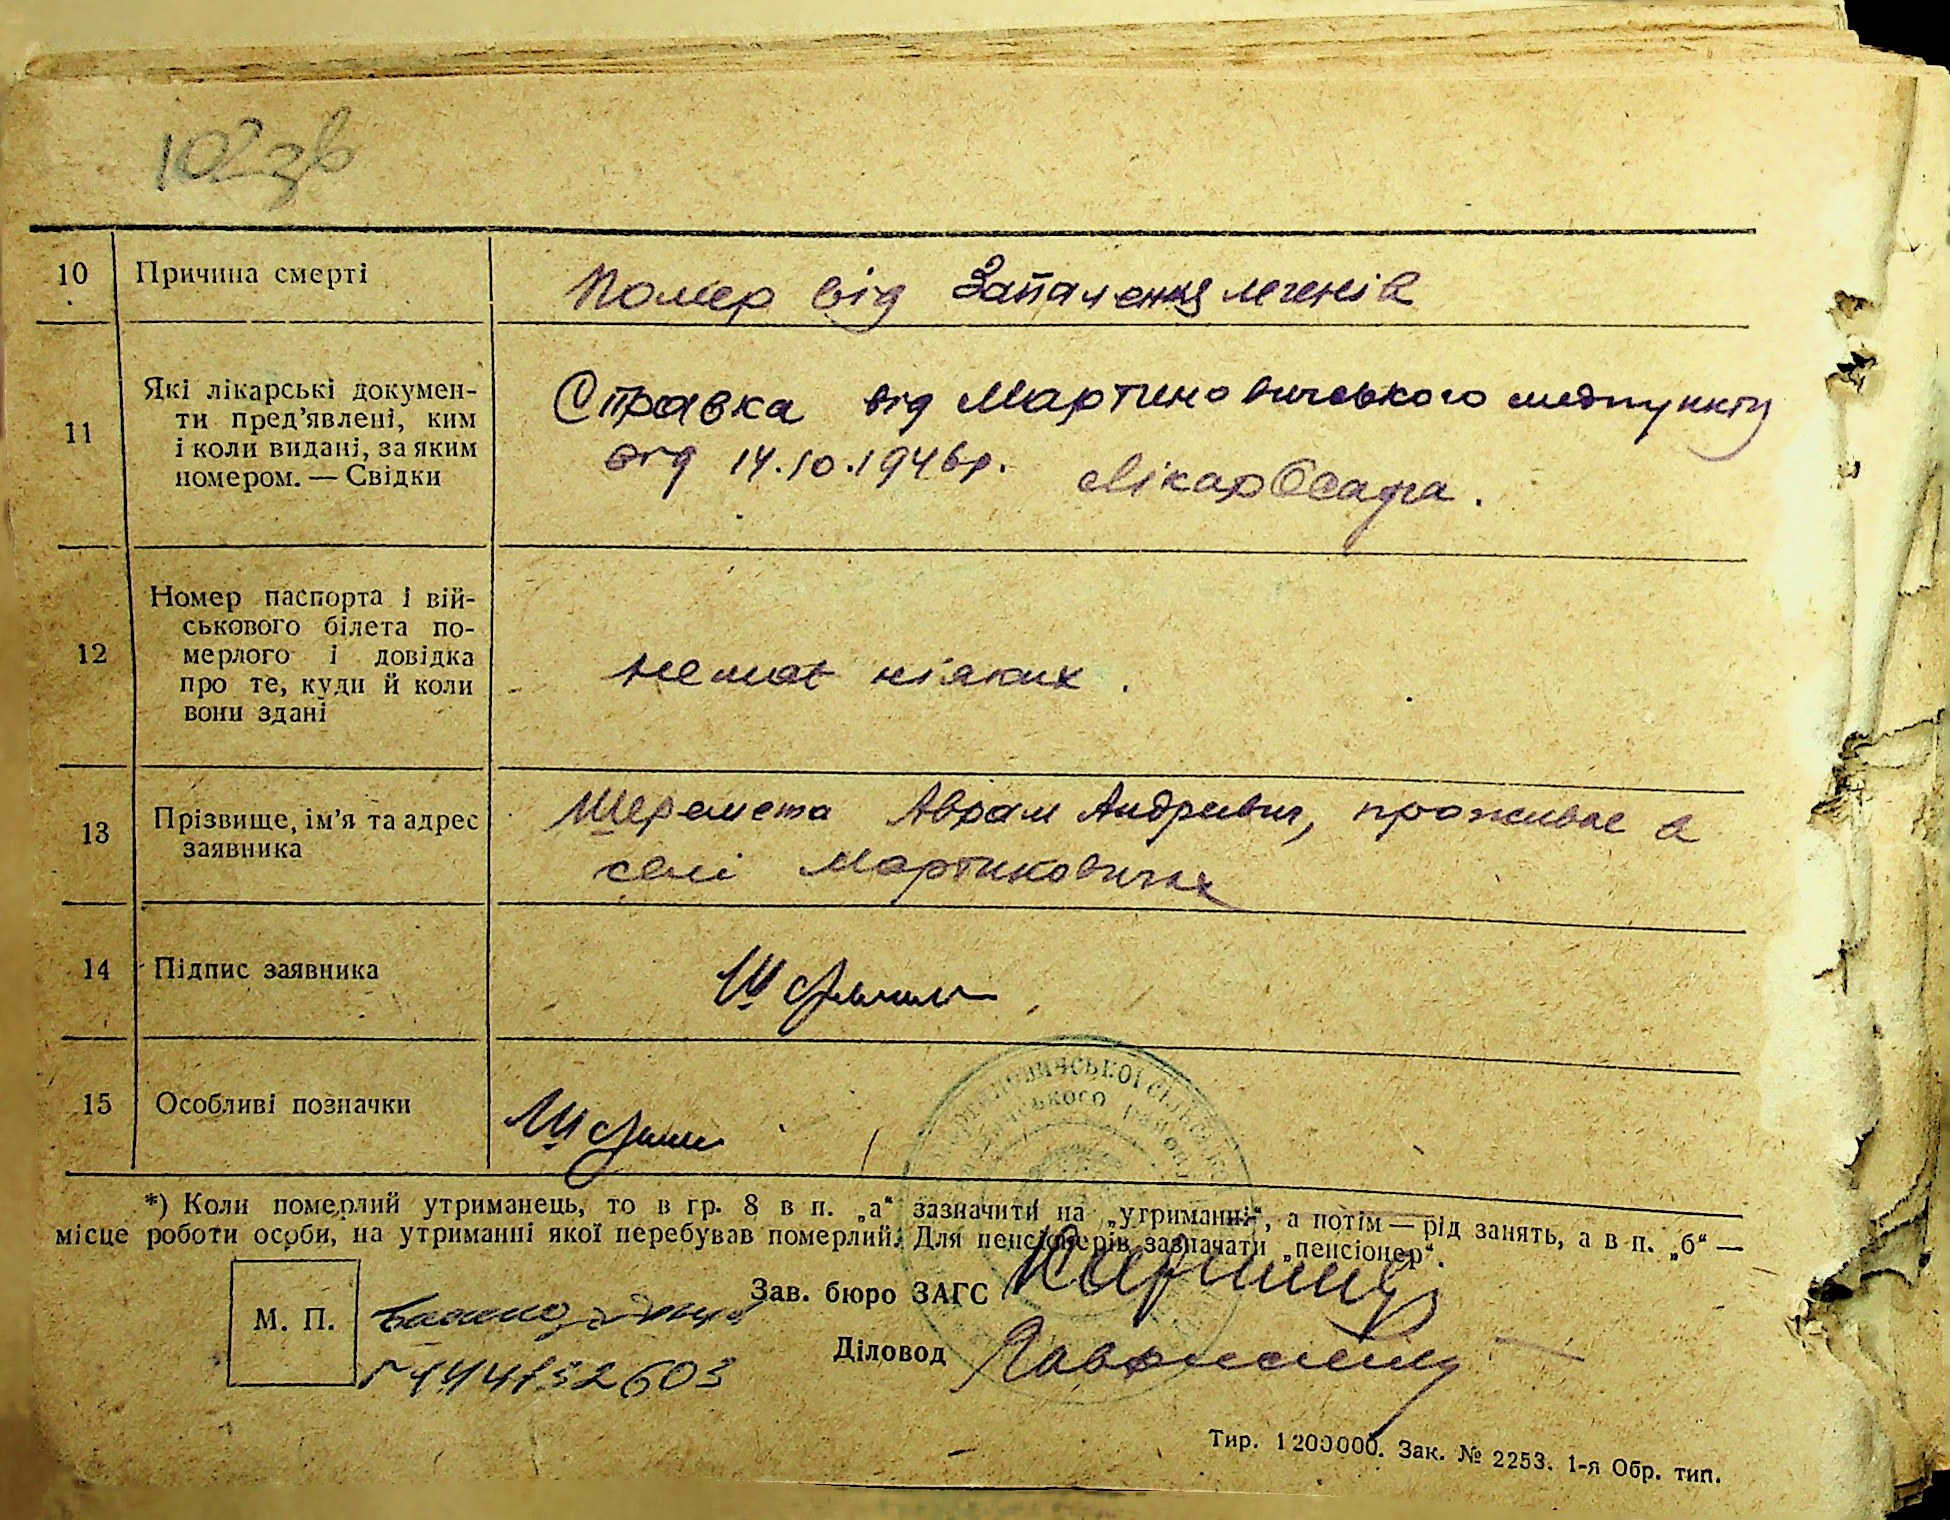 102зв
10 Причина смерті
Помер від Запалення легенів
11 Які лікарські докумен-
ти пред’явлені, ким
і коли видані, за яким
номером. — Свідки
Справка від Мартиновичського медпункту
від 14.10.1946р. Лікар
12 Номер паспорта і вій-
ськового білета по-
мерлого і довідка
про те, куди й коли
вони здані
немає ніяких.
13 Прізвище, ім’я та адрес
заявника
Шеремета Аврам Андреевич, проживає в
селі Мартиновичах
14 Підпис заявника
15 Особливі позначки
*) Коли померлий утриманець, то в гр. 8 в п. „а“ зазначити на „утриманні“, а потім — рід занять, а в п. „б“ —
місце роботи особи, на утриманні якої перебував померлий. Для пенсіонерів зазначати „пенсіонер“.
Зав. бюро ЗАГС
М. П.
Діловод
Тир. 1200000. Зак. № 2253. 1-я Обр. тип.